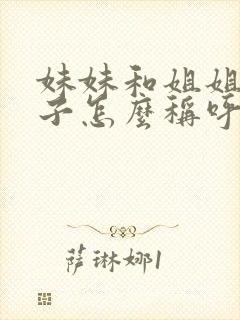 妹妹和姐姐
子怎麼稱呼
萨琳娜1